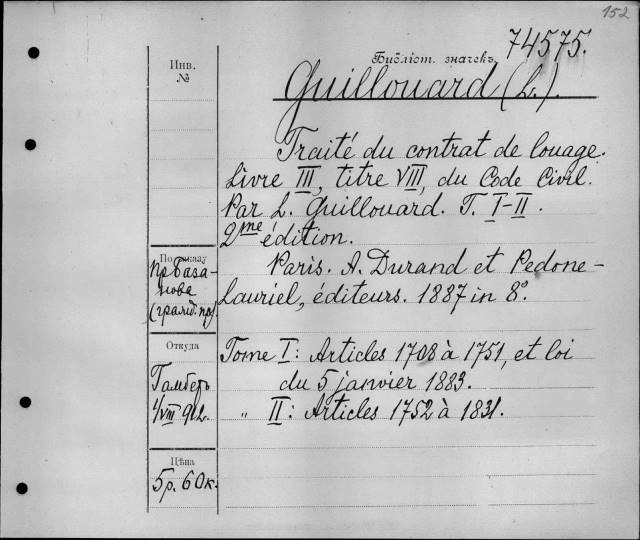 152
74575.
Инв.
№
Библіот. значекъ
Guillouard (L.).
Traité du contrat de louage.
Livre III, titre VIII, du Code Civil.
Par L. Guillouard. T. I-II.
2me édition.
По заказу
пр База-
нова
Paris. A. Durand et Pedone-
Lauriel, éditeurs. 1887 in 8°.
Откуда
Гамберъ
4/VIII 912.
Tome I: Articles 1708 à 1751, et loi
du 5 janvier 1883.
„ II: Articles 1752 à 1831.
Цѣна
5 р. 60 к.